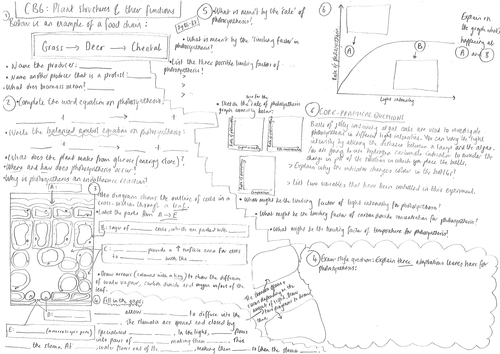 CB6: Plant structures & their functions
1) Below is an example of a food chain:
Grass → Deer → Cheetah
• Name the producer:
• Name another product that is a protist:
• What does biomass mean?
2 • Complete the word equation on photosynthesis.
+ → +
• Write the balanced symbol equation on photosynthesis:
+ → +
• What does the plant make from glucose (energy store)?
• Where and how does photosynthesis occur?
• Why is photosynthesis an endothermic reaction?
3
• This diagram shows the outline of cells in a
cross-section through a leaf.
• Label the parts from A → E
A:
B: layer of cells which are packed with
C: provide a ↑ surface area for cells
to with the
D:
E: (microscopic pores)
• Draw arrows (colours with a key) to show the diffusion
of water vapour, carbon dioxide and oxygen in/out of the
leaf.
• Fill in the gaps:
allow to diffuse into the
The stomata are opened and closed by
specialised. In the light, flows
into pairs of making them. This
the stoma. At water flows out of the, making them so then the stoma
5 • What is meant by the 'rate' of
photosynthesis?
• What is meant by the 'limiting factor' in
photosynthesis?
• List the three possible limiting factors of
photosynthesis?
>
>
>
• Sketch the rate of photosynthesis
graph correctly below:
Light intensity
Temperature
• What might be the limiting factor of light intensity for photosynthesis?
• What might be the limiting factor of carbon dioxide concentration for photosynthesis?
• What might be the limiting factor of temperature for photosynthesis?
6
Rate of photosynthesis
A
B
Light intensity
Explain on
the graph what's
happening at
A and B
6 CORE-PRACTICAL QUESTIONS
Balls of jelly containing algal cells are used to investigate
photosynthesis in different light intensities. You can vary the light
intensity by altering the distance between a lamp and the algae.
You are going to use hydrogen carbonate indicator to monitor the
change in pH of the solution in which you place the balls.
> Explain why the indicator changes colour in the bottle?
> List two variables that have been controlled in their experiment.
4 Exam style question: Explain three adaptations leaves have for
photosynthesis: